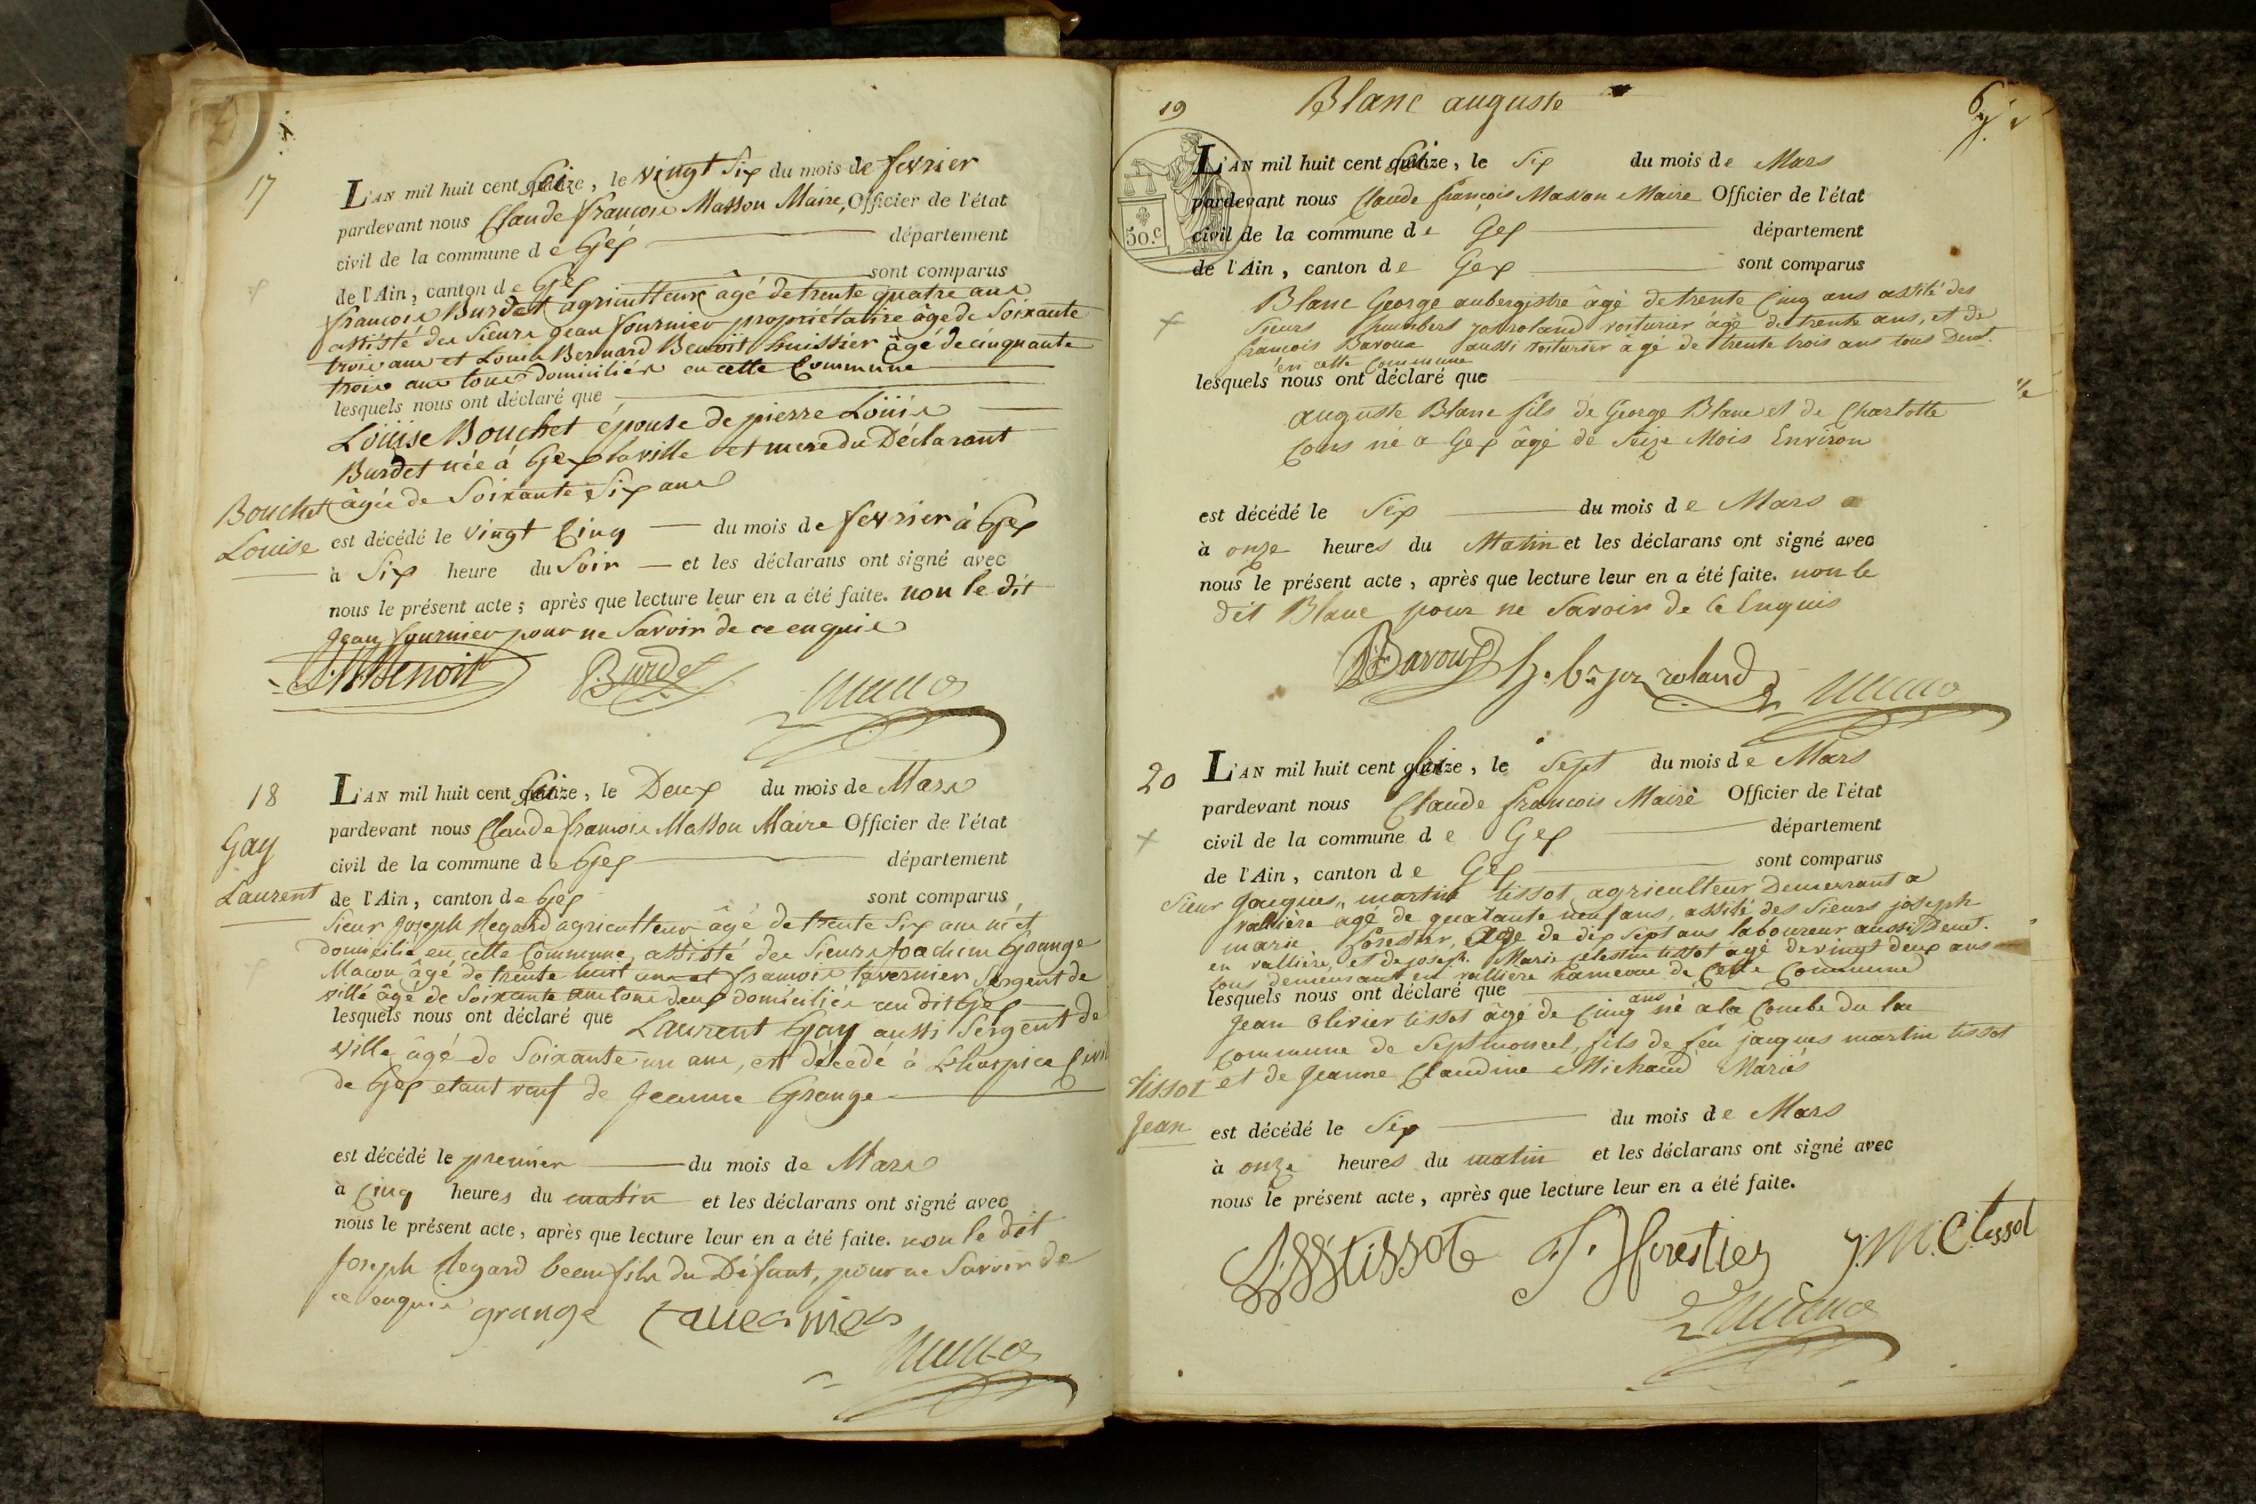 17
L'AN mil huit cent seize, le vingt six du mois de fevrier
pardevant nous Claude francois Masson Maire, Officier de l'état
civil de la commune de Gex département
de l'Ain, canton de Gex sont comparus
francois Burdet agriculteur âgé de trente quatre ans
assisté des Sieurs jean fournier propriétaire âgé de Soixante
trois ans et Louis Bernard Benoit huissier âgé de cinquante
trois ans tous domiciliés en cette Commune
lesquels nous ont déclaré que
Loüise Bouchet épouse de pierre Loüis
Burdet née á Gex la ville et mere du Déclarant
Bouchet âgée de Soixante Six ans
Louise est décédé le vingt Cinq du mois de fevrier à Gex
à Six heure du Soir et les déclarans ont signé avec
nous le présent acte; après que lecture leur en a été faite. non le dit
Jean fournier pour ne Savoir de ce enquis
Benoit Burdet
18
L'AN mil huit cent seize, le Deux du mois de Mars
pardevant nous Claude francois Masson Maire Officier de l'état
Gay
civil de la commune de Gex département
Laurent de l'Ain, canton de Gex sont comparus
Sieur Joseph Regard agriculteur âgé de trente Six ans né et
domicilié en cette Commune, assisté des Sieurs Joachim Grange
Macon âgé de trente huit ans et francois tavernier Sergent de
ville âgé de Soixante ans tous deux domiciliés au dit Gex
lesquels nous ont déclaré que Laurent Gay aussi Sergent de
ville âgé de Soixante un ans, est décédé à L'hospice Civil
de Gex etant veuf de Jeanne Grange
est décédé le premier du mois de Mars
à Cinq heures du matin et les déclarans ont signé avec
nous le présent acte, après que lecture leur en a été faite. non le dit
Joseph Regard beau fils du Défunt, pour ne Savoir de
ce enquis grange tavernier
19 Blanc auguste
6
50.c
L'AN mil huit cent seize, le Six du mois de Mars
pardevant nous Claude françois Masson Maire Officier de l'état
civil de la commune de Gex département
de l'Ain, canton de Gex sont comparus
Blanc George aubergistre âgé de trente Cinq ans assité des
Sieurs humbert roland voiturier âgé de trente ans, et de
francois Baroux aussi voiturier âgé de trente trois ans tous Demt.
en cette Commune
lesquels nous ont déclaré que
auguste Blanc fils de George Blanc et de Charlotte
Cons né a Gex âgé de Seize Mois Environ
est décédé le Six du mois de Mars
à onze heures du Matin et les déclarans ont signé avec
nous le présent acte, après que lecture leur en a été faite. non le
dit Blanc pour ne Savoir de Ce Enquis
roland
20
L'AN mil huit cent seize, le Sept du mois de Mars
pardevant nous Claude francois Maire Officier de l'état
civil de la commune de Gex département
de l'Ain, canton de Gex sont comparus
Sieur Jacques, martin tissot agriculteur Demeurrant a
vallière agé de quarante neuf ans, assité des Sieurs joseph
marie forestier, âgé de dix sept ans laboureur aussi Demt.
en vallière, et de joseph Marie celestin tissot âgé de vingt deux ans
tous demeurant en vallière hameau de Cette Commune
lesquels nous ont déclaré que
Jean Olivier tissot âgé de Cinq ans né a la Combe du lac
Commune de Septmoncel, fils de feu jacques martin tissot
Tissot et de Jeanne Claudine Michaud Mariés
Jean est décédé le Six du mois de Mars
à onze heures du matin et les déclarans ont signé avec
nous le présent acte, après que lecture leur en a été faite.
tissot J. forestier J. M. C. tissot